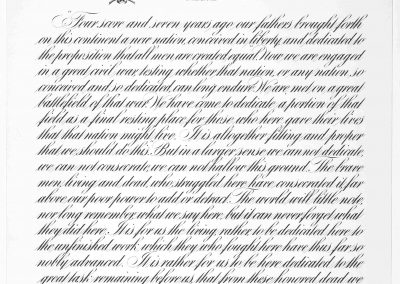 Four score and seven years ago our fathers brought forth
on this continent a new nation, conceived in liberty, and dedicated to
the proposition that all men are created equal. Now we are engaged
in a great civil war, testing whether that nation, or any nation, so
conceived and so dedicated, can long endure. We are met on a great
battlefield of that war. We have come to dedicate, a portion of that
field as a final resting place for those who here gave their lives
that that nation might live. It is altogether fitting and proper
that we should do this. But in a larger sense we can not dedicate,
we can not consecrate, we can not hallow this ground. The brave
men, living and dead, who struggled here have consecrated it, far
above our poor power to add or detract. The world will little note,
nor long remember, what we say here, but it can never forget what
they did here. It is for us the living, rather to be dedicated here to
the unfinished work which they who fought here have thus far, so
nobly advanced. It is rather for us to be here dedicated to the
great task remaining before us, that from these honored dead we